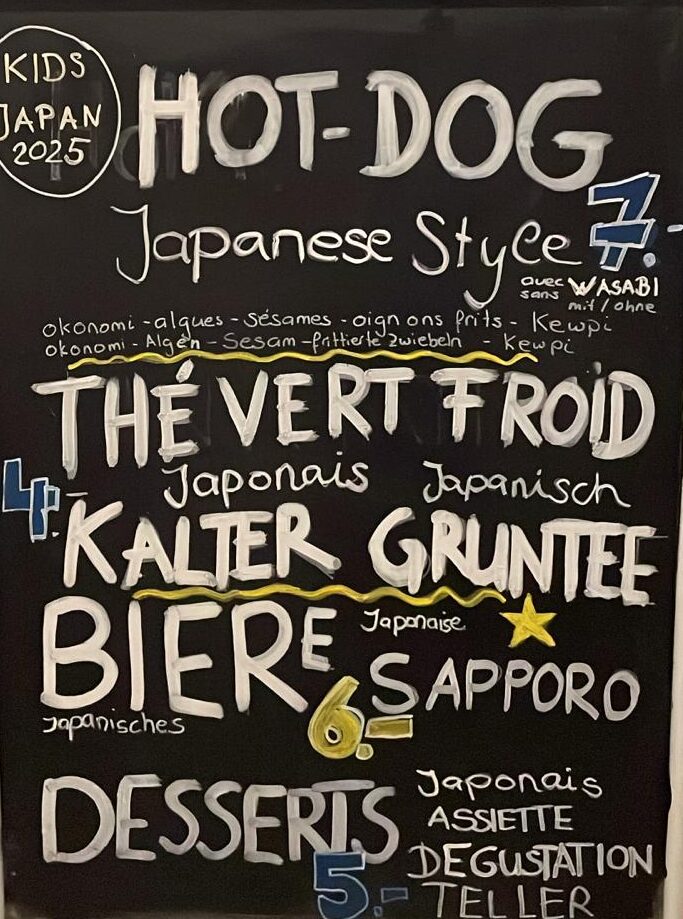 KIDS
JAPAN
2025
HOT-DOG
Japanese Style 7.-
avec WASABI
sans mit/ohne
okonomi - algues - Sésames - oignons frits - Kewpi
okonomi - Algen - Sesam - frittierte Zwiebeln - Kewpi
THÉ VERT FROID
Japonais Japanisch
4.-
KALTER GRUNTEE
BIERE Japonaise
SAPPORO
Japanisches 6.-
DESSERTS Japonais
ASSIETTE
DEGUSTATION
5.- TELLER